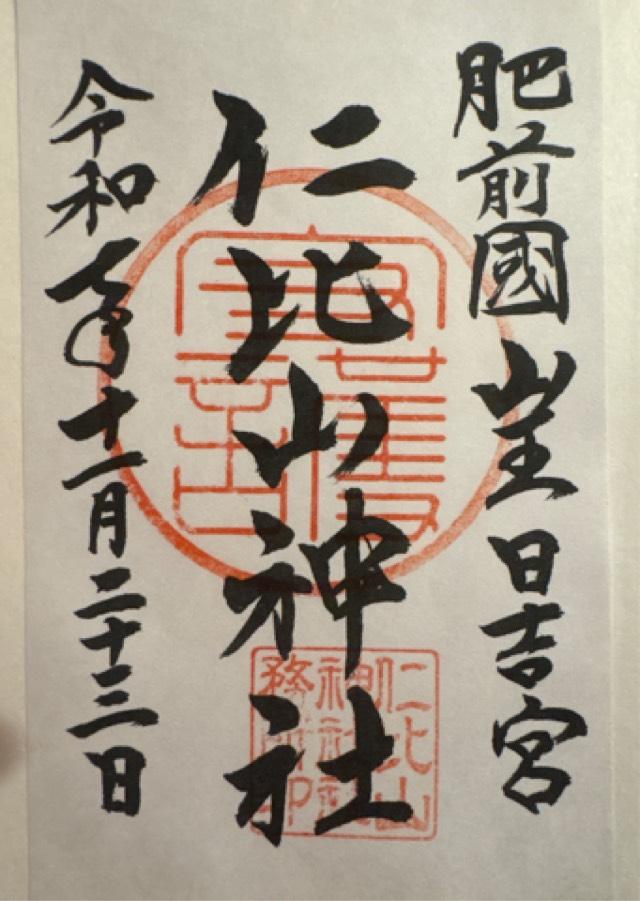 肥前國 山王日吉宮
仁比山神社
令和七年十一月二十三日
仁比山
神社社
務所印